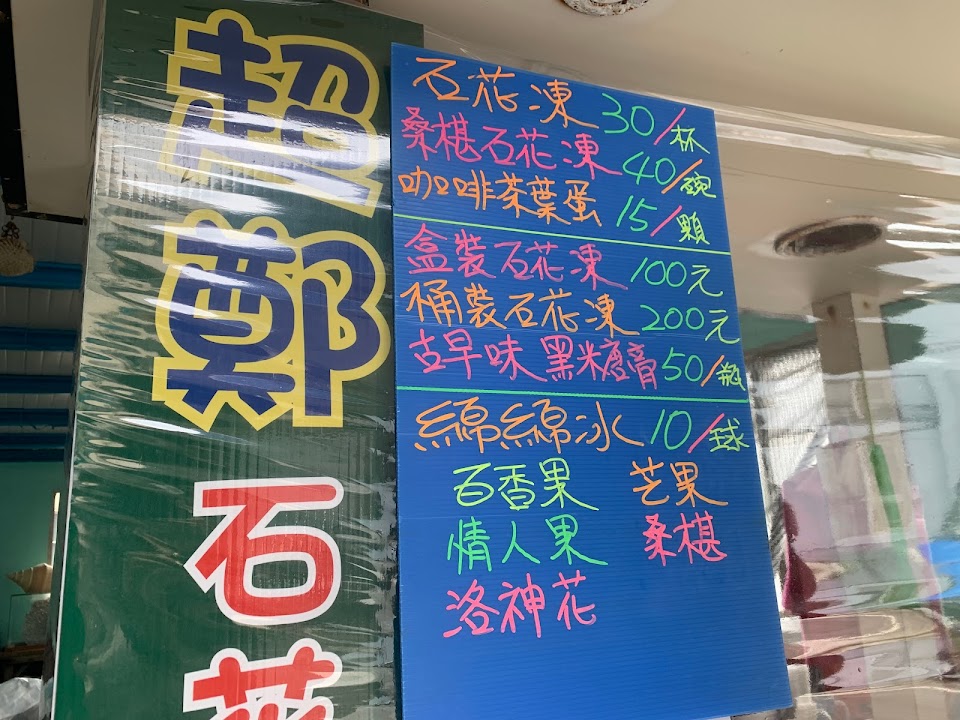 超鄭石花
石花凍 30/杯
桑椹石花凍 40/碗
咖啡茶葉蛋 15/顆
盒裝石花凍 100元
桶裝石花凍 200元
古早味黑糖膏 50/瓶
綿綿冰 10/球
百香果 芒果
情人果 桑椹
洛神花